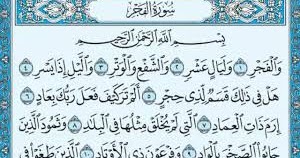 سُورَةُ الْفَجْرِ
بِسْمِ اللَّهِ الرَّحْمَٰنِ الرَّحِيمِ
وَالْفَجْرِ ۝١ وَلَيَالٍ عَشْرٍ ۝٢ وَالشَّفْعِ وَالْوَتْرِ ۝٣ وَاللَّيْلِ إِذَا يَسْرِ ۝٤
هَلْ فِي ذَٰلِكَ قَسَمٌ لِّذِي حِجْرٍ ۝٥ أَلَمْ تَرَ كَيْفَ فَعَلَ رَبُّكَ بِعَادٍ ۝٦
إِرَمَ ذَاتِ الْعِمَادِ ۝٧ الَّتِي لَمْ يُخْلَقْ مِثْلُهَا فِي الْبِلَادِ ۝٨ وَثَمُودَ الَّذِينَ
جَابُوا الصَّخْرَ بِالْوَادِ ۝٩ وَفِرْعَوْنَ ذِي الْأَوْتَادِ ۝١٠ الَّذِينَ طَغَوْا فِي